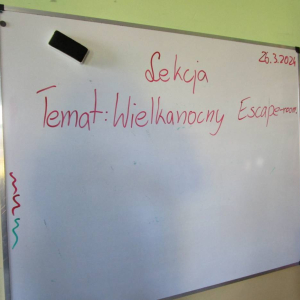 26.3.2024
Lekcja
Temat: Wielkanocny Escape-room.